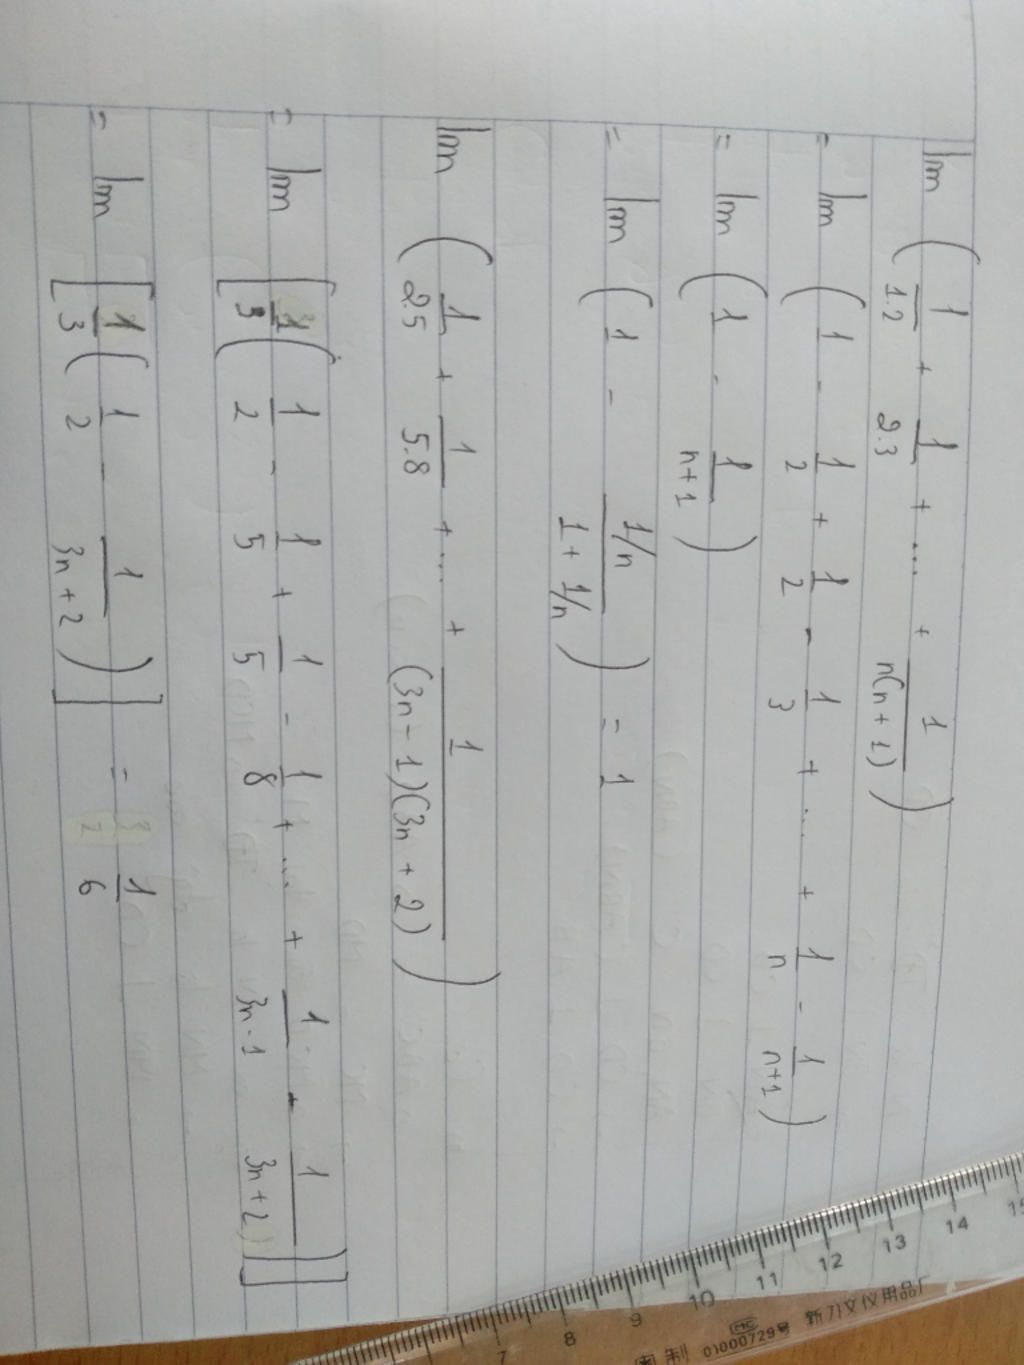 lim ( 1/1.2 + 1/2.3 + ... + 1/n(n+1) )
= lim ( 1 - 1/2 + 1/2 - 1/3 + ... + 1/n - 1/n+1 )
= lim ( 1 - 1/n+1 )
= lim ( 1 - 1/n / 1 + 1/n ) = 1
lim ( 1/2.5 + 1/5.8 + ... + 1/(3n-1)(3n+2) )
= lim [ 1/3 ( 1/2 - 1/5 + 1/5 - 1/8 + ... + 1/3n-1 + 1/3n+2 ) ]
= lim [ 1/3 ( 1/2 - 1/3n+2 ) ] = 1/6
7 8 9 10 11 12 13 14 15
制 01000729号 新力文仪用品厂
MC